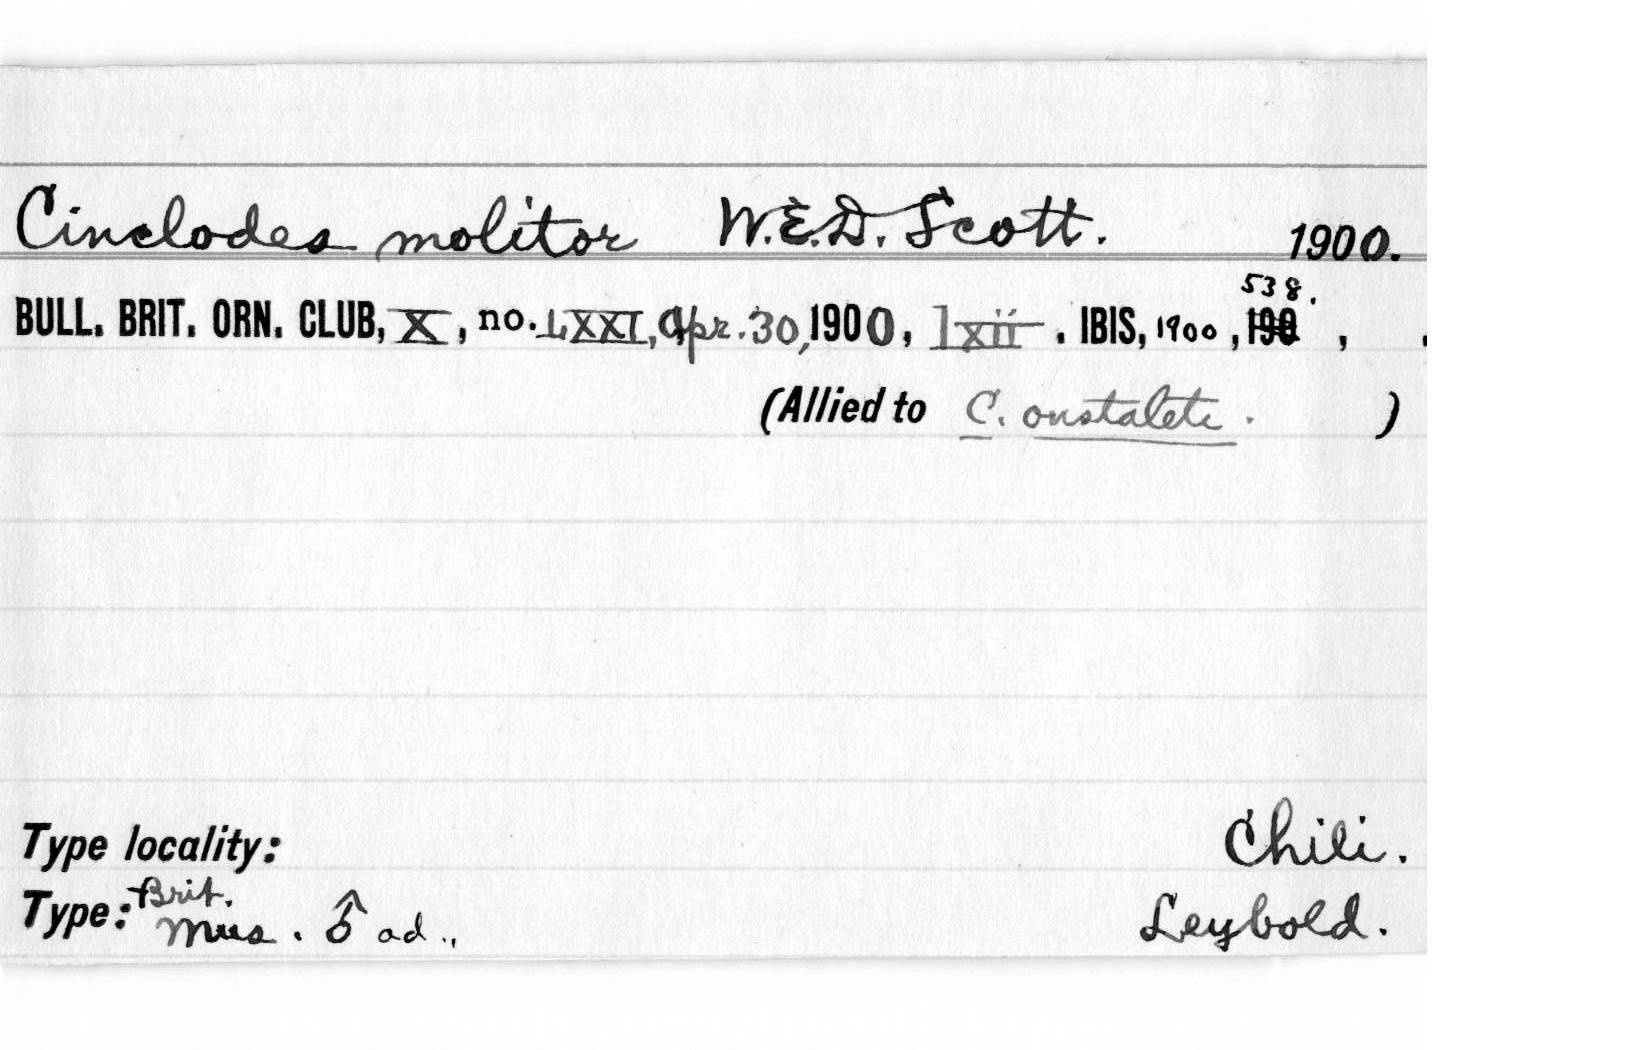 Cinclodes molitor W.E.D. Scott. 1900.
538.
BULL. BRIT. ORN. CLUB, X, no. LXXI, Apr. 30, 1900, lxii. IBIS, 1900, 190 , .
(Allied to C. oustaleti. )
Type locality: Chili.
Type: Brit. Mus. ♂ ad., Leybold.